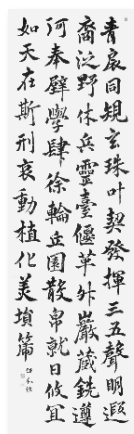 青扆同規玄珠叶契發揮三五聲明遐
裔泛野休兵靈臺偃革舛巖藏銑遵
河奉璧學肆徐輪丘園散帛就日攸宜
如天在斯刑哀動植化美塤篪